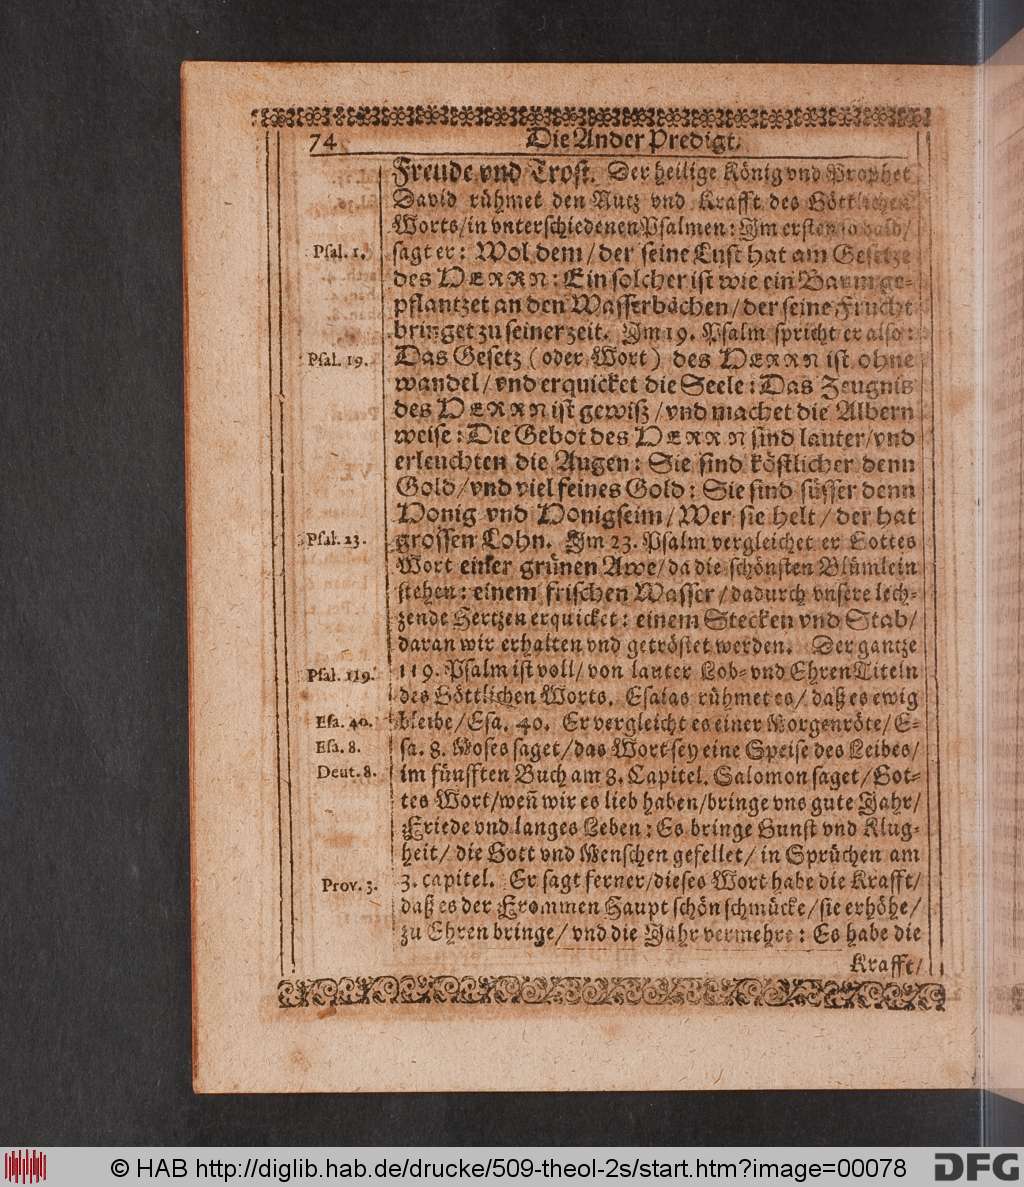 74
Die Ander Predigt.
Freude vnd Trost. Der heilige König vnd Prophet
David rühmet den Nutz vnd Krafft des Göttlichen
Worts/in vnterschiedenen Psalmen: Im ersten so bald/
Psal. 1.
sagt er: Wol dem/der seine Lust hat am Gesetze
des HERRN: Ein solcher ist wie ein Baum ge-
pflantzet an den Wasserbächen/der seine Frucht
bringet zu seiner zeit. Im 19. Psalm spricht er also:
Psal. 19.
Das Gesetz (oder Wort) des HERRN ist ohne
wandel/vnd erquicket die Seele: Das Zeugnis
des HERRN ist gewiß/vnd machet die Albern
weise: Die Gebot des HERRN sind lauter/vnd
erleuchten die Augen: Sie sind köstlicher denn
Gold/vnd viel feines Gold: Sie sind süsser denn
Honig vnd Honigseim/Wer sie helt/der hat
Psal. 23.
grossen Lohn. Im 23. Psalm vergleichet er Gottes
Wort einer grünen Awe/da die schönsten Blümlein
stehen: einem frischen Wasser/dadurch vnsere lech-
zende Hertzen erquicket: einem Stecken vnd Stab/
daran wir erhalten vnd getröstet werden. Der gantze
Psal. 119.
119. Psalm ist voll/von lauter Lob- vnd Ehren Titeln
des Göttlichen Worts. Esaias rühmet es/daß es ewig
Esa. 40.
bleibe/Esa. 40. Er vergleicht es einer Morgenröte/E-
Esa. 8.
sa. 8. Moses saget/das Wort sey eine Speise des Leibes/
Deut. 8.
im fünfften Buch am 8. Capitel. Salomon saget/Got-
tes Wort/weñ wir es lieb haben/bringe vns gute Jahr/
Friede vnd langes Leben: Es bringe Gunst vnd Klug-
heit/die Gott vnd Menschen gefellet/in Sprüchen am
Prov. 3.
3. capitel. Er sagt ferner/dieses Wort habe die Krafft/
daß es der Frommen Haupt schön schmücke/sie erhöhe/
zu Ehren bringe/vnd die Jahr vermehre: Es habe die
Krafft/
© HAB http://diglib.hab.de/drucke/509-theol-2s/start.htm?image=00078
DFG